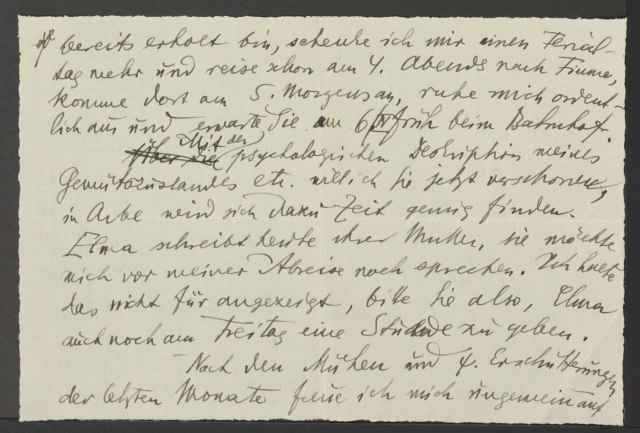 bereits erholt bin, schenke ich mir einen Ferial-
tag mehr und reise schon am 4. Abends nach Fiume,
komme dort am 5. Morgens an, ruhe mich ordent-
lich aus und erwarte Sie am 6/IV früh beim Bahnhof.
Über die Mit der psychologischen Deskription meines
Gemütszustandes etc. will ich Sie jetzt verschonen,
in Arbe wird sich dazu Zeit genug finden.
Elma schreibt heute ihrer Mutter, sie möchte
mich vor meiner Abreise noch sprechen. Ich halte
das nicht für angezeigt, bitte Sie also, Elma
auch noch am Freitag eine Stunde zu geben.
Nach den Mühen und Erschütterungen
der letzten Monate freue ich mich ungemein auf